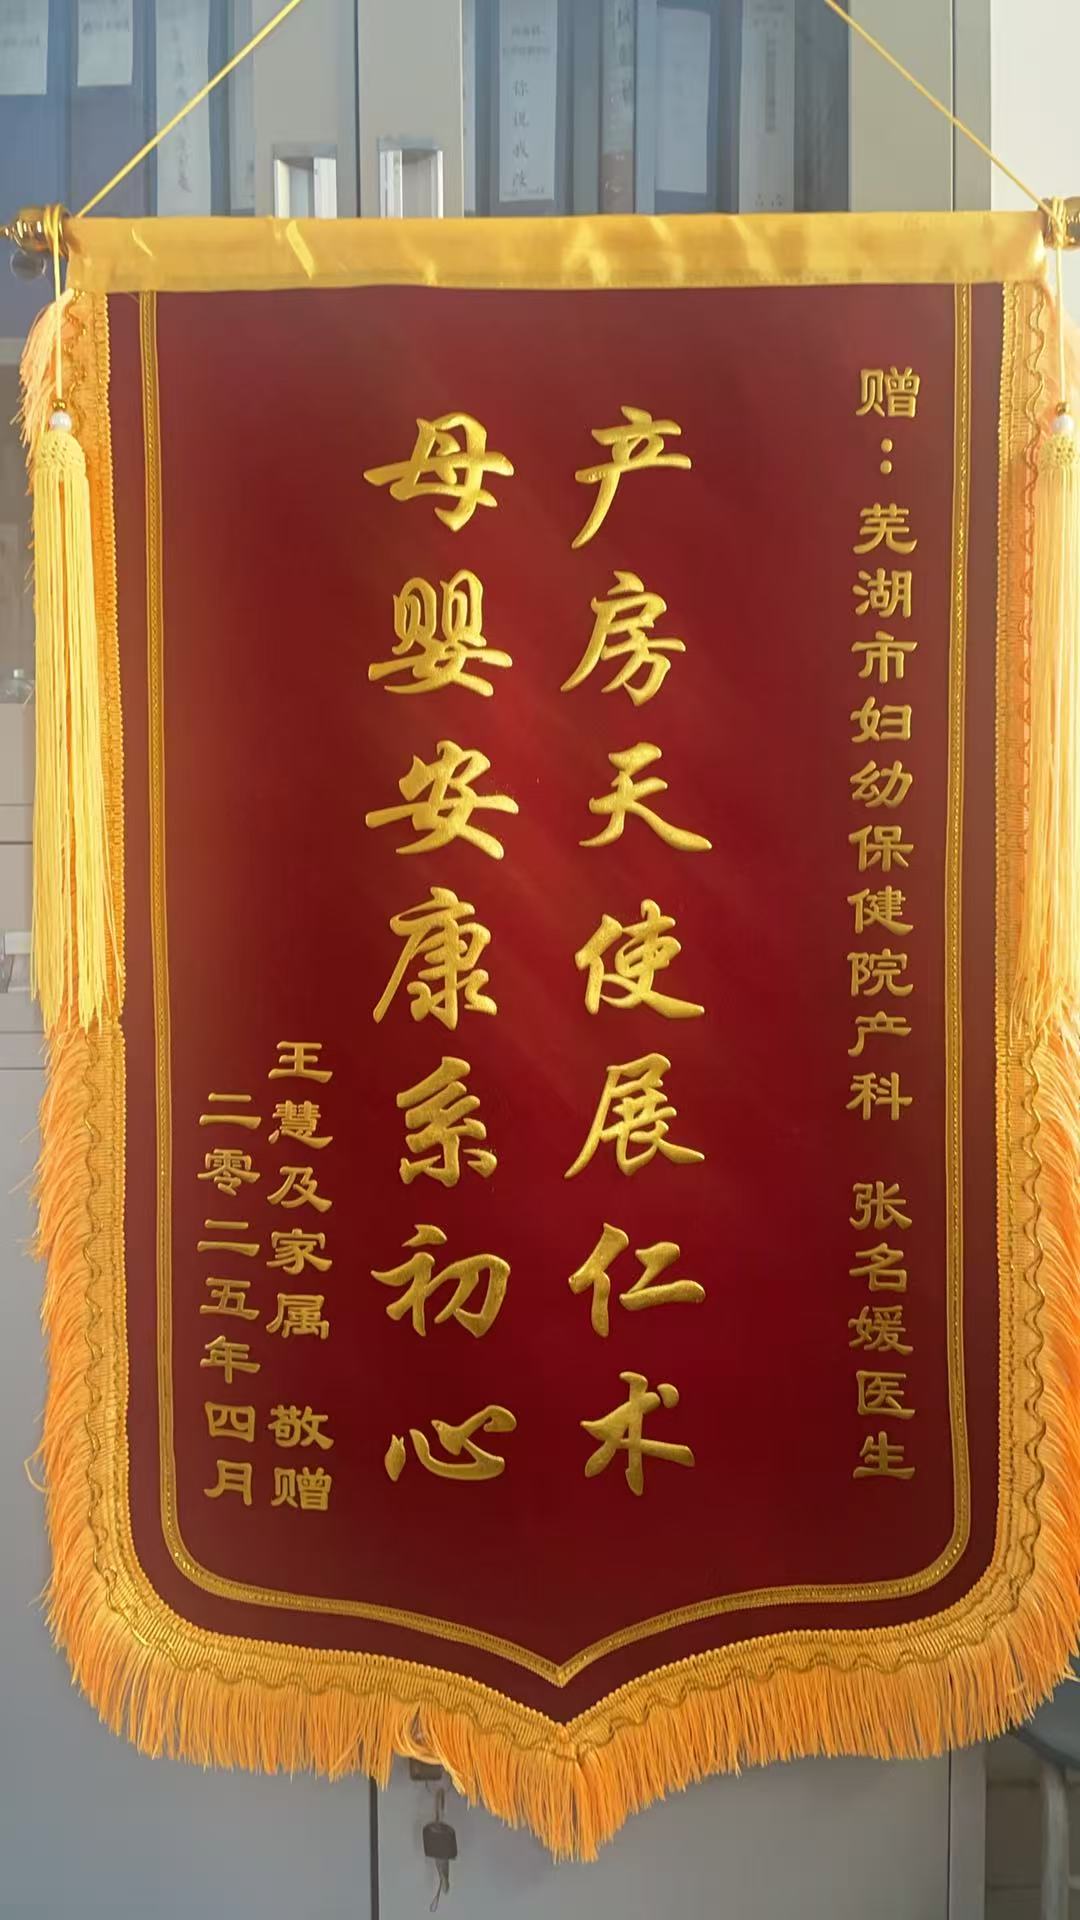 赠：芜湖市妇幼保健院产科 张名媛医生
产房天使展仁术
母婴安康系初心
王慧及家属 敬赠
二零二五年四月
你说我